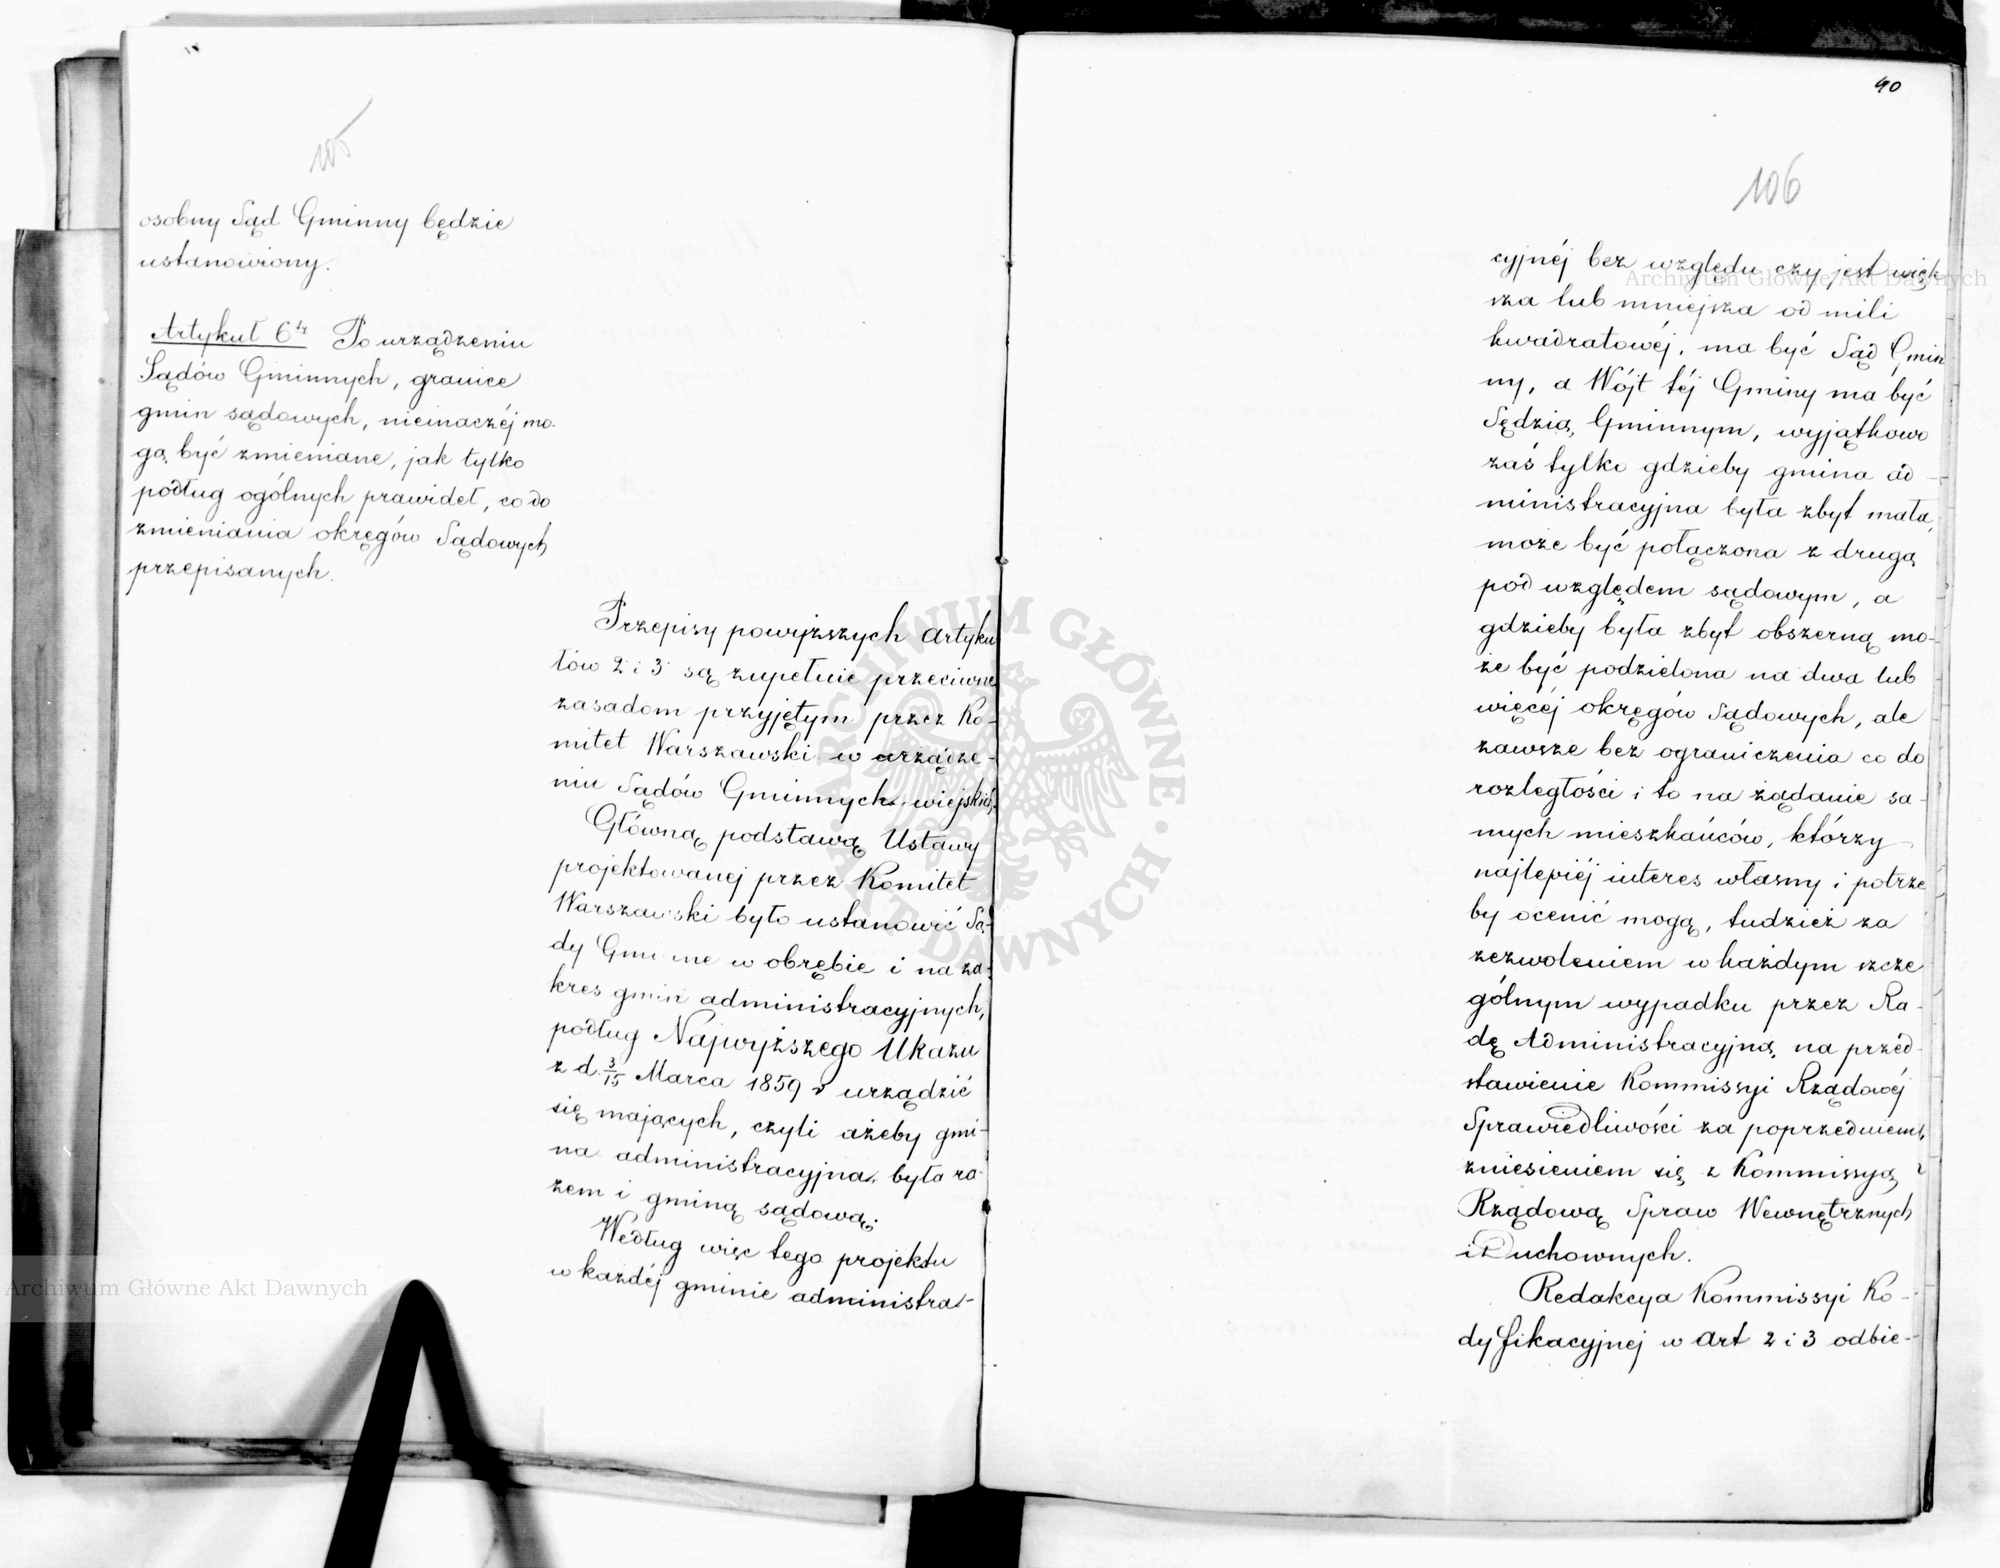 105
osobny Sąd Gminny będzie
ustanowiony.
Artykuł 6ty Po urządzeniu
Sądów Gminnych, granice
gmin sądowych, nieinaczéj mo-
gą być zmieniane, jak tylko
podług ogólnych prawideł, co do
zmieniania okręgów Sądowych
przepisanych.
Przepisy powyższych Artyku
łów 2 i 3 są zupełnie przeciwne
zasadom przyjętym przez Ko-
mitet Warszawski w urządze-
niu Sądów Gminnych wiejskich.
Główną podstawą Ustawy
projektowanej przez Komitet
Warszawski było ustanowić Są-
dy Gminne w obrębie i na za-
kres gmin administracyjnych,
podług Najwyższego Ukazu
z d. 3/15 Marca 1859 r urządzić
się mających, czyli ażeby gmi-
na administracyjna była ra-
zem i gminą sądową.
Według więc tego projektu
w każdéj gminie administra-
90
106
cyjnéj bez względu czy jest więk
sza lub mniejsza od mili
kwadratowéj, ma być Sąd Gmin
ny, a Wójt téj Gminy ma być
Sędzią Gminnym, wyjątkowo
zaś tylko gdzieby gmina ad-
ministracyjna była zbyt mała,
może być połączona z drugą
pod względem sądowym, a
gdzieby była zbyt obszerną mo-
że być podzielona na dwa lub
więcéj okręgów Sądowych, ale
zawsze bez ograniczenia co do
rozległości i to na żądanie sa-
mych mieszkańców, którzy
najlepiéj interes własny i potrze
by ocenić mogą, tudzież za
zezwoleniem w każdym szcze
gólnym wypadku przez Ra-
dę Administracyjną, na przed-
stawienie Kommissyi Rządowéj
Sprawiedliwości za poprzedniem
zniesieniem się z Kommissyą
Rządową Spraw Wewnętrznych
i Duchownych.
Redakcya Kommissyi Ko-
dyfikacyjnej w Art 2 i 3 odbie-
ARCHIWUM GŁÓWNE AKT DAWNYCH
Archiwum Główne Akt Dawnych
Archiwum Główne Akt Dawnych